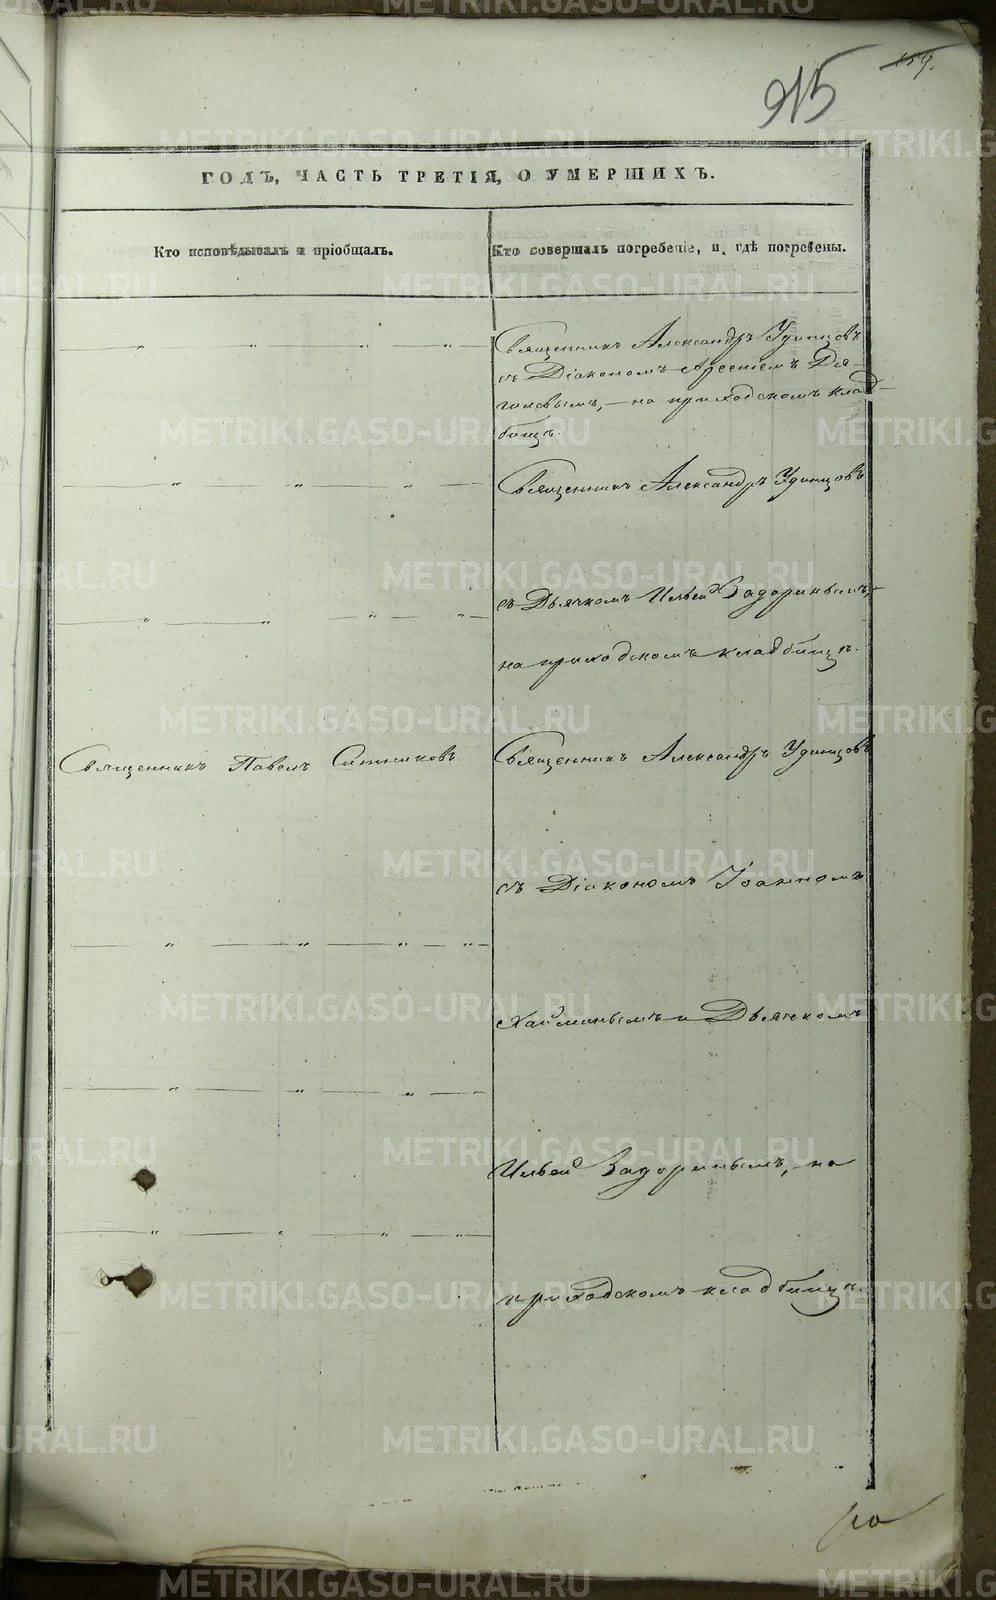 915
159.
ГОДЪ, ЧАСТЬ ТРЕТІЯ, О УМЕРШИХЪ.
Кто исповѣдывалъ и пріобщалъ.
Кто совершалъ погребеніе, и гдѣ погребены.
Священникъ Александръ Удинцовъ
съ Діакономъ Арсеніемъ Дя-
гилевымъ, - на приходскомъ клад-
бищѣ.
Священникъ Александръ Удинцовъ
съ Дьячкомъ Ильею Задоринымъ,
на приходскомъ кладбищѣ.
Священникъ Павелъ Ситниковъ.
Священникъ Александръ Удинцовъ
съ Діакономъ Іоанномъ
Хайминымъ и Дьячкомъ
Ильею Задоринымъ, - на
приходскомъ кладбищѣ.
METRIKI.GASO-URAL.RU